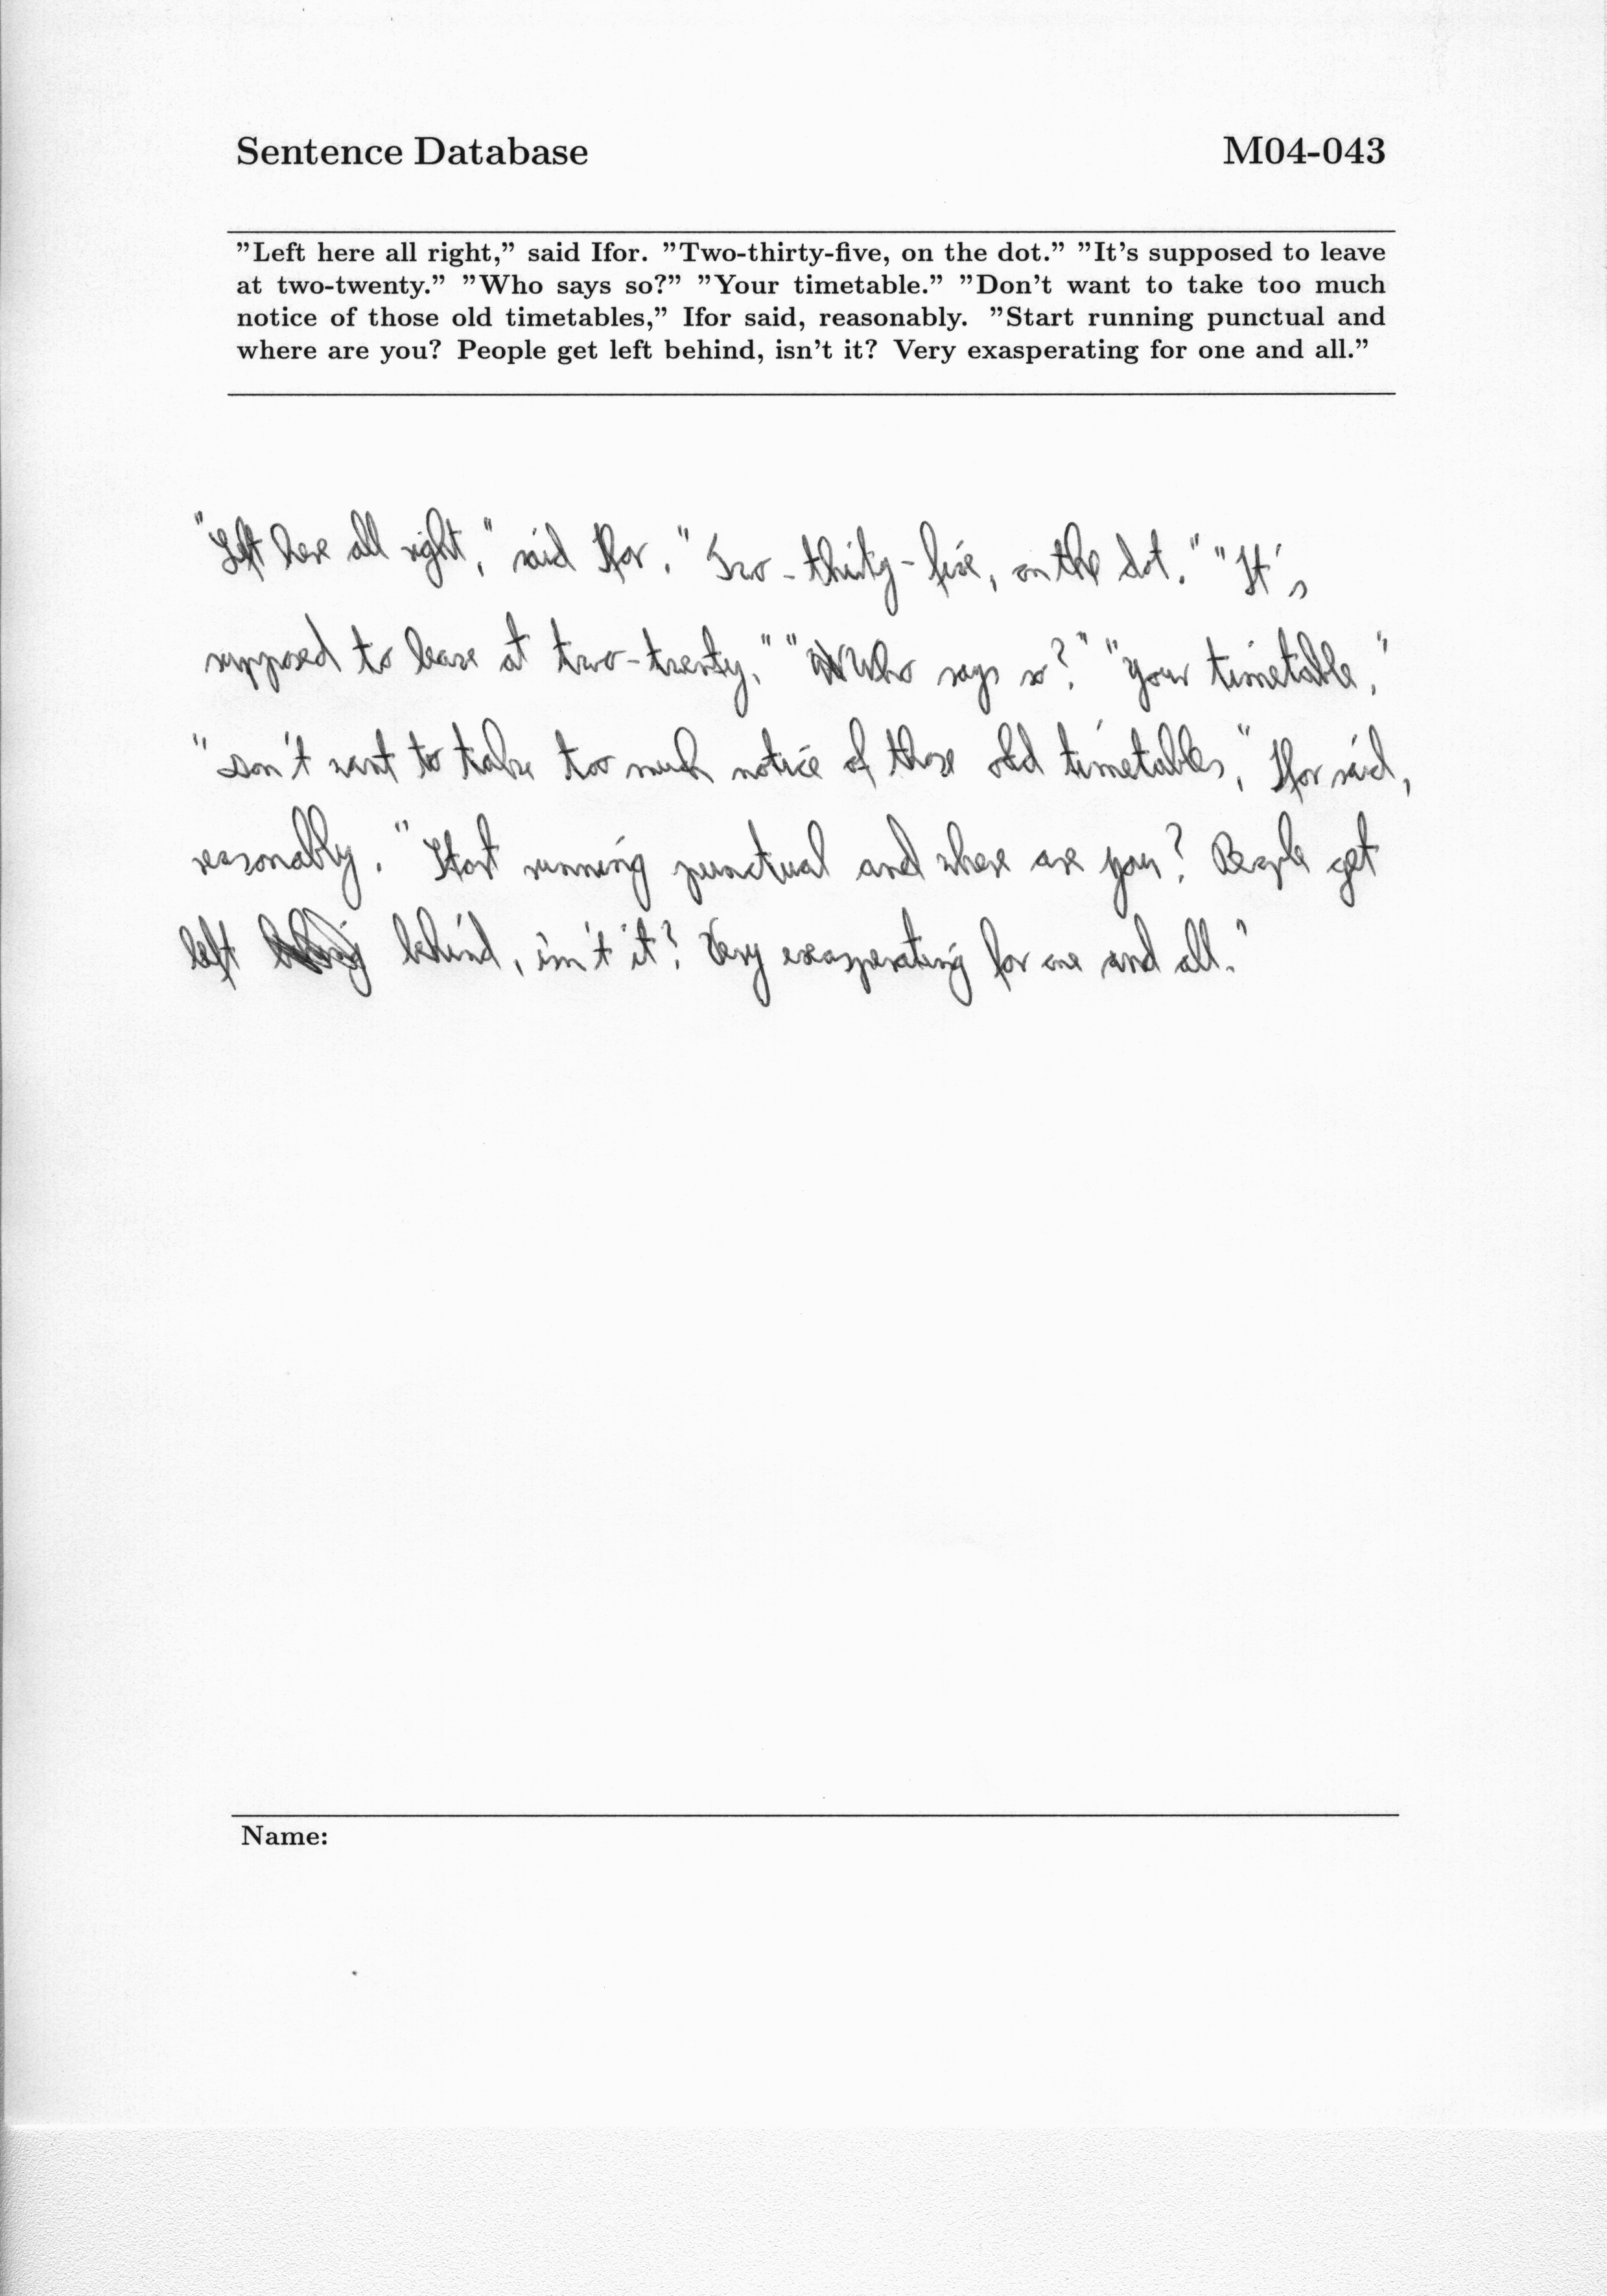 Sentence Database M04-043
”Left here all right,” said Ifor. ”Two-thirty-five, on the dot.” ”It’s supposed to leave
at two-twenty.” ”Who says so?” ”Your timetable.” ”Don’t want to take too much
notice of those old timetables,” Ifor said, reasonably. ”Start running punctual and
where are you? People get left behind, isn’t it? Very exasperating for one and all.”
"Left here all right," said Ifor. "Two-thirty-five, on the dot." "It's
supposed to leave at two-twenty." "Who says so?" "Your timetable."
"Don't want to take too much notice of those old timetables," Ifor said,
reasonably. "Start running punctual and where are you? People get
left behind, isn't it? Very exasperating for one and all."
Name: